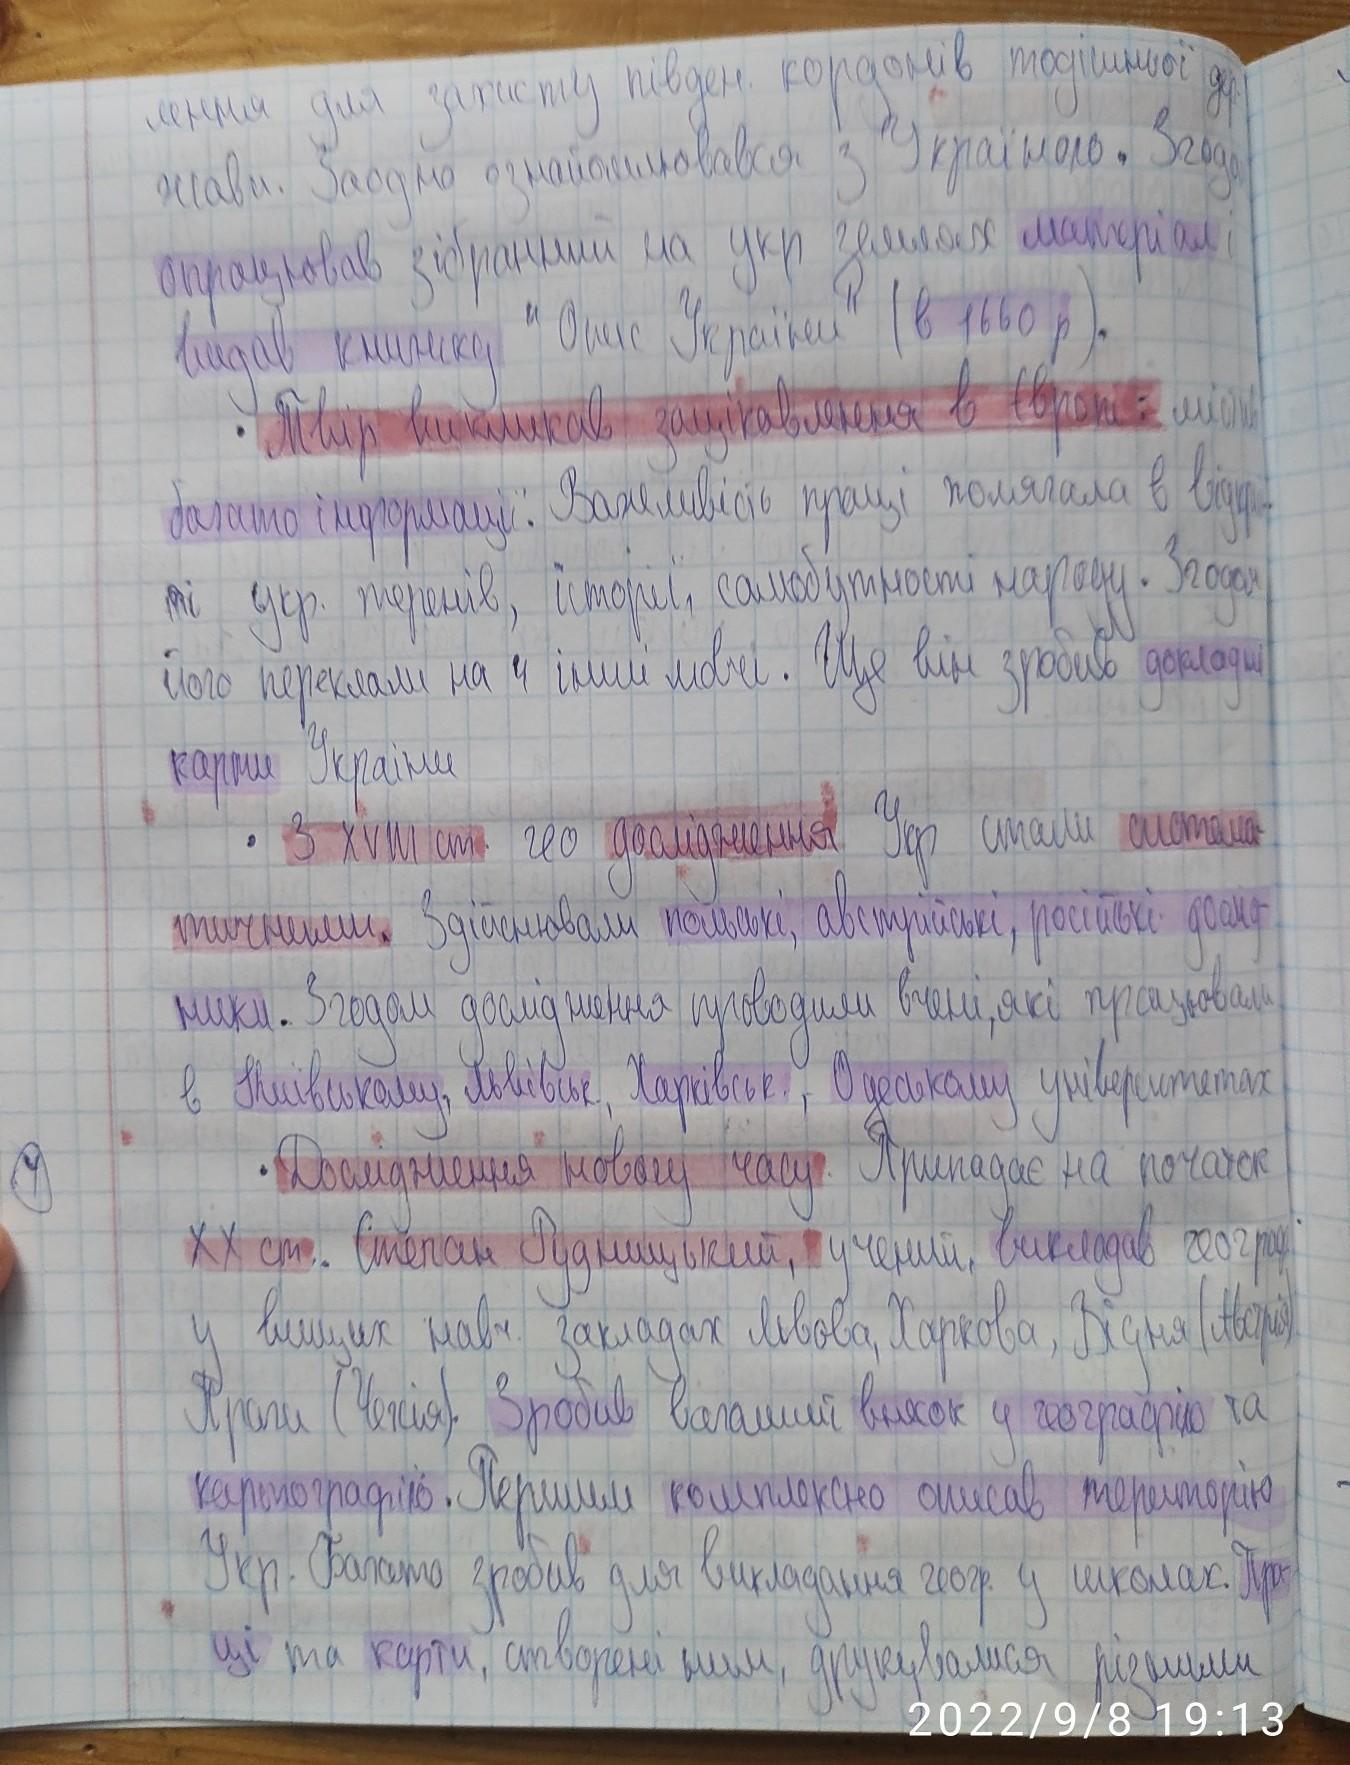 лення для захисту півден. кордонів тодішньої дер-
жави. Заодно ознайомлювався з Україною. Згодо
опрацював зібранний на укр землях матеріал і
видав книжку "Опис України" (в 1660 р).
• Твір викликав зацікавлення в Європі: мість
багато інформації. Важливість праці полягала в відкри-
ті укр. теренів, історії, самобутності народу. Згодом
його переклали на 4 інші мови. Ще він зробив докладні
карти України
• З XVIII ст. гео дослідження Укр стали система-
тичними. Здійснювали польські, австрійські, російські дослід-
ники. Згодом дослідження проводили вчені, які працювали
в Київському, Львівськ., Харківськ., Одеському університетах
4 • Дослідження нового часу. Припадає на початок
XX ст. Степан Рудницький, учений, викладав географ
у вищих навч. закладах Львова, Харкова, Відня (Австрія)
Праги (Чехія). Зробив вагомий внесок у географію та
картографію. Першим комплексно описав територію
Укр. Багато зробив для викладання геогр. у школах. Пра-
ці та карти, створені ним, друкувалися різними
2022/9/8 19:13